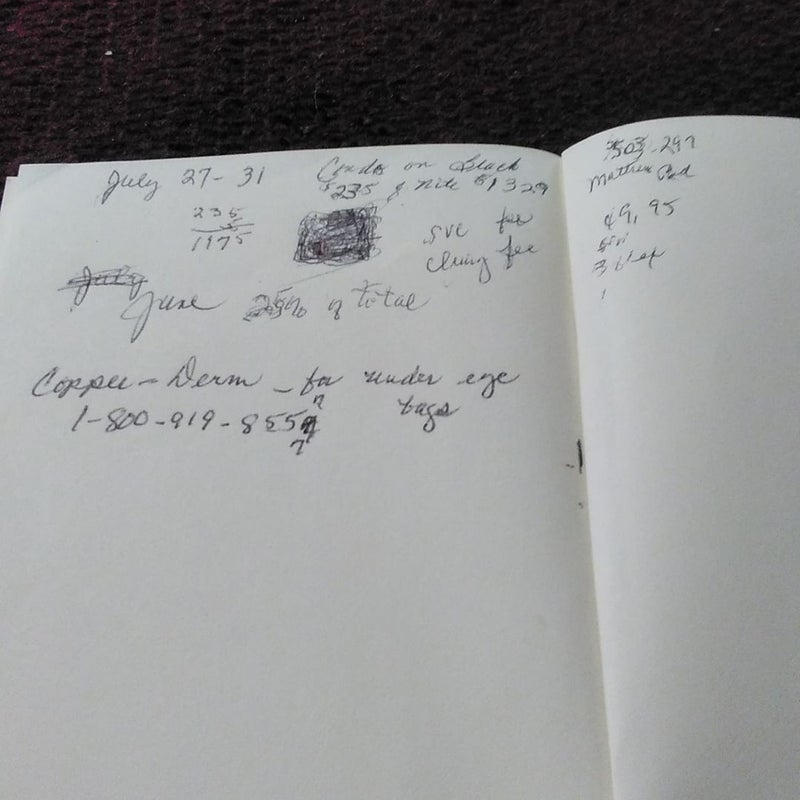 July 27-31 Condo on Beach
$235 a Nite $1329
235
5
1175
svc fee
clning fee
July
June 25% of total
Copper-Derm - for under eye
1-800-919-855 bags
7
503-297
Mattress Pad
49,95